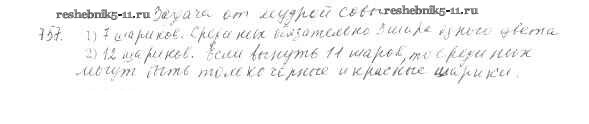 www.reshebnik5-11.ru Задача от мудрой совы www.reshebnik5-11.ru
757. 1) 7 шариков. Среди них обязательно 3 шара одного цвета
2) 12 шариков. Если вынуть 11 шаров, то среди них
могут быть только чёрные и красные шарики.